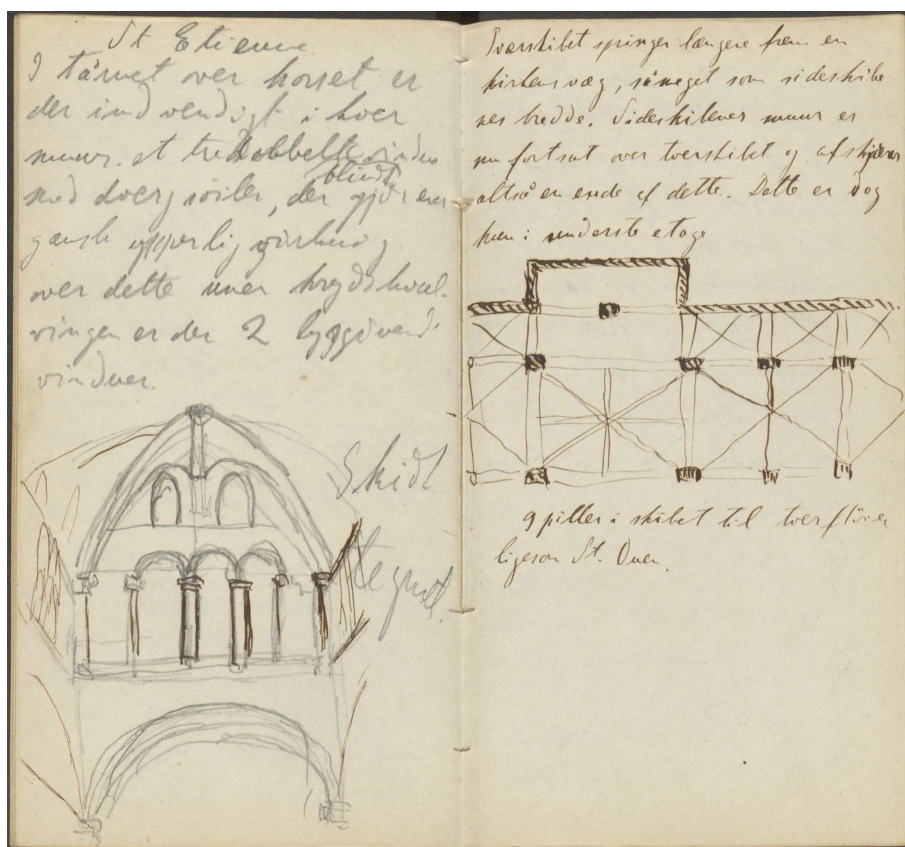 St Etienne
I tårnet over korset er
der indvendigt i hver
muur et tredobbelt vindue
blindt
med dvergsöiler, der gjör en
ganske ypperlig virkning
over dette under krydshvæl-
vingen er der 2 lysgivende
vinduer.
Skidt
tegnet.
Tværskibet springer længere frem en
kirkens væg, såmeget som sideskibe
nes bredde. Sideskibenes muur er
nu fortsat over tverskibet og afskjærer
altså en ende af dette. Dette er dog
kun i underste etage
9 piller i skibet til tverflöien
ligesom St. Ouen.